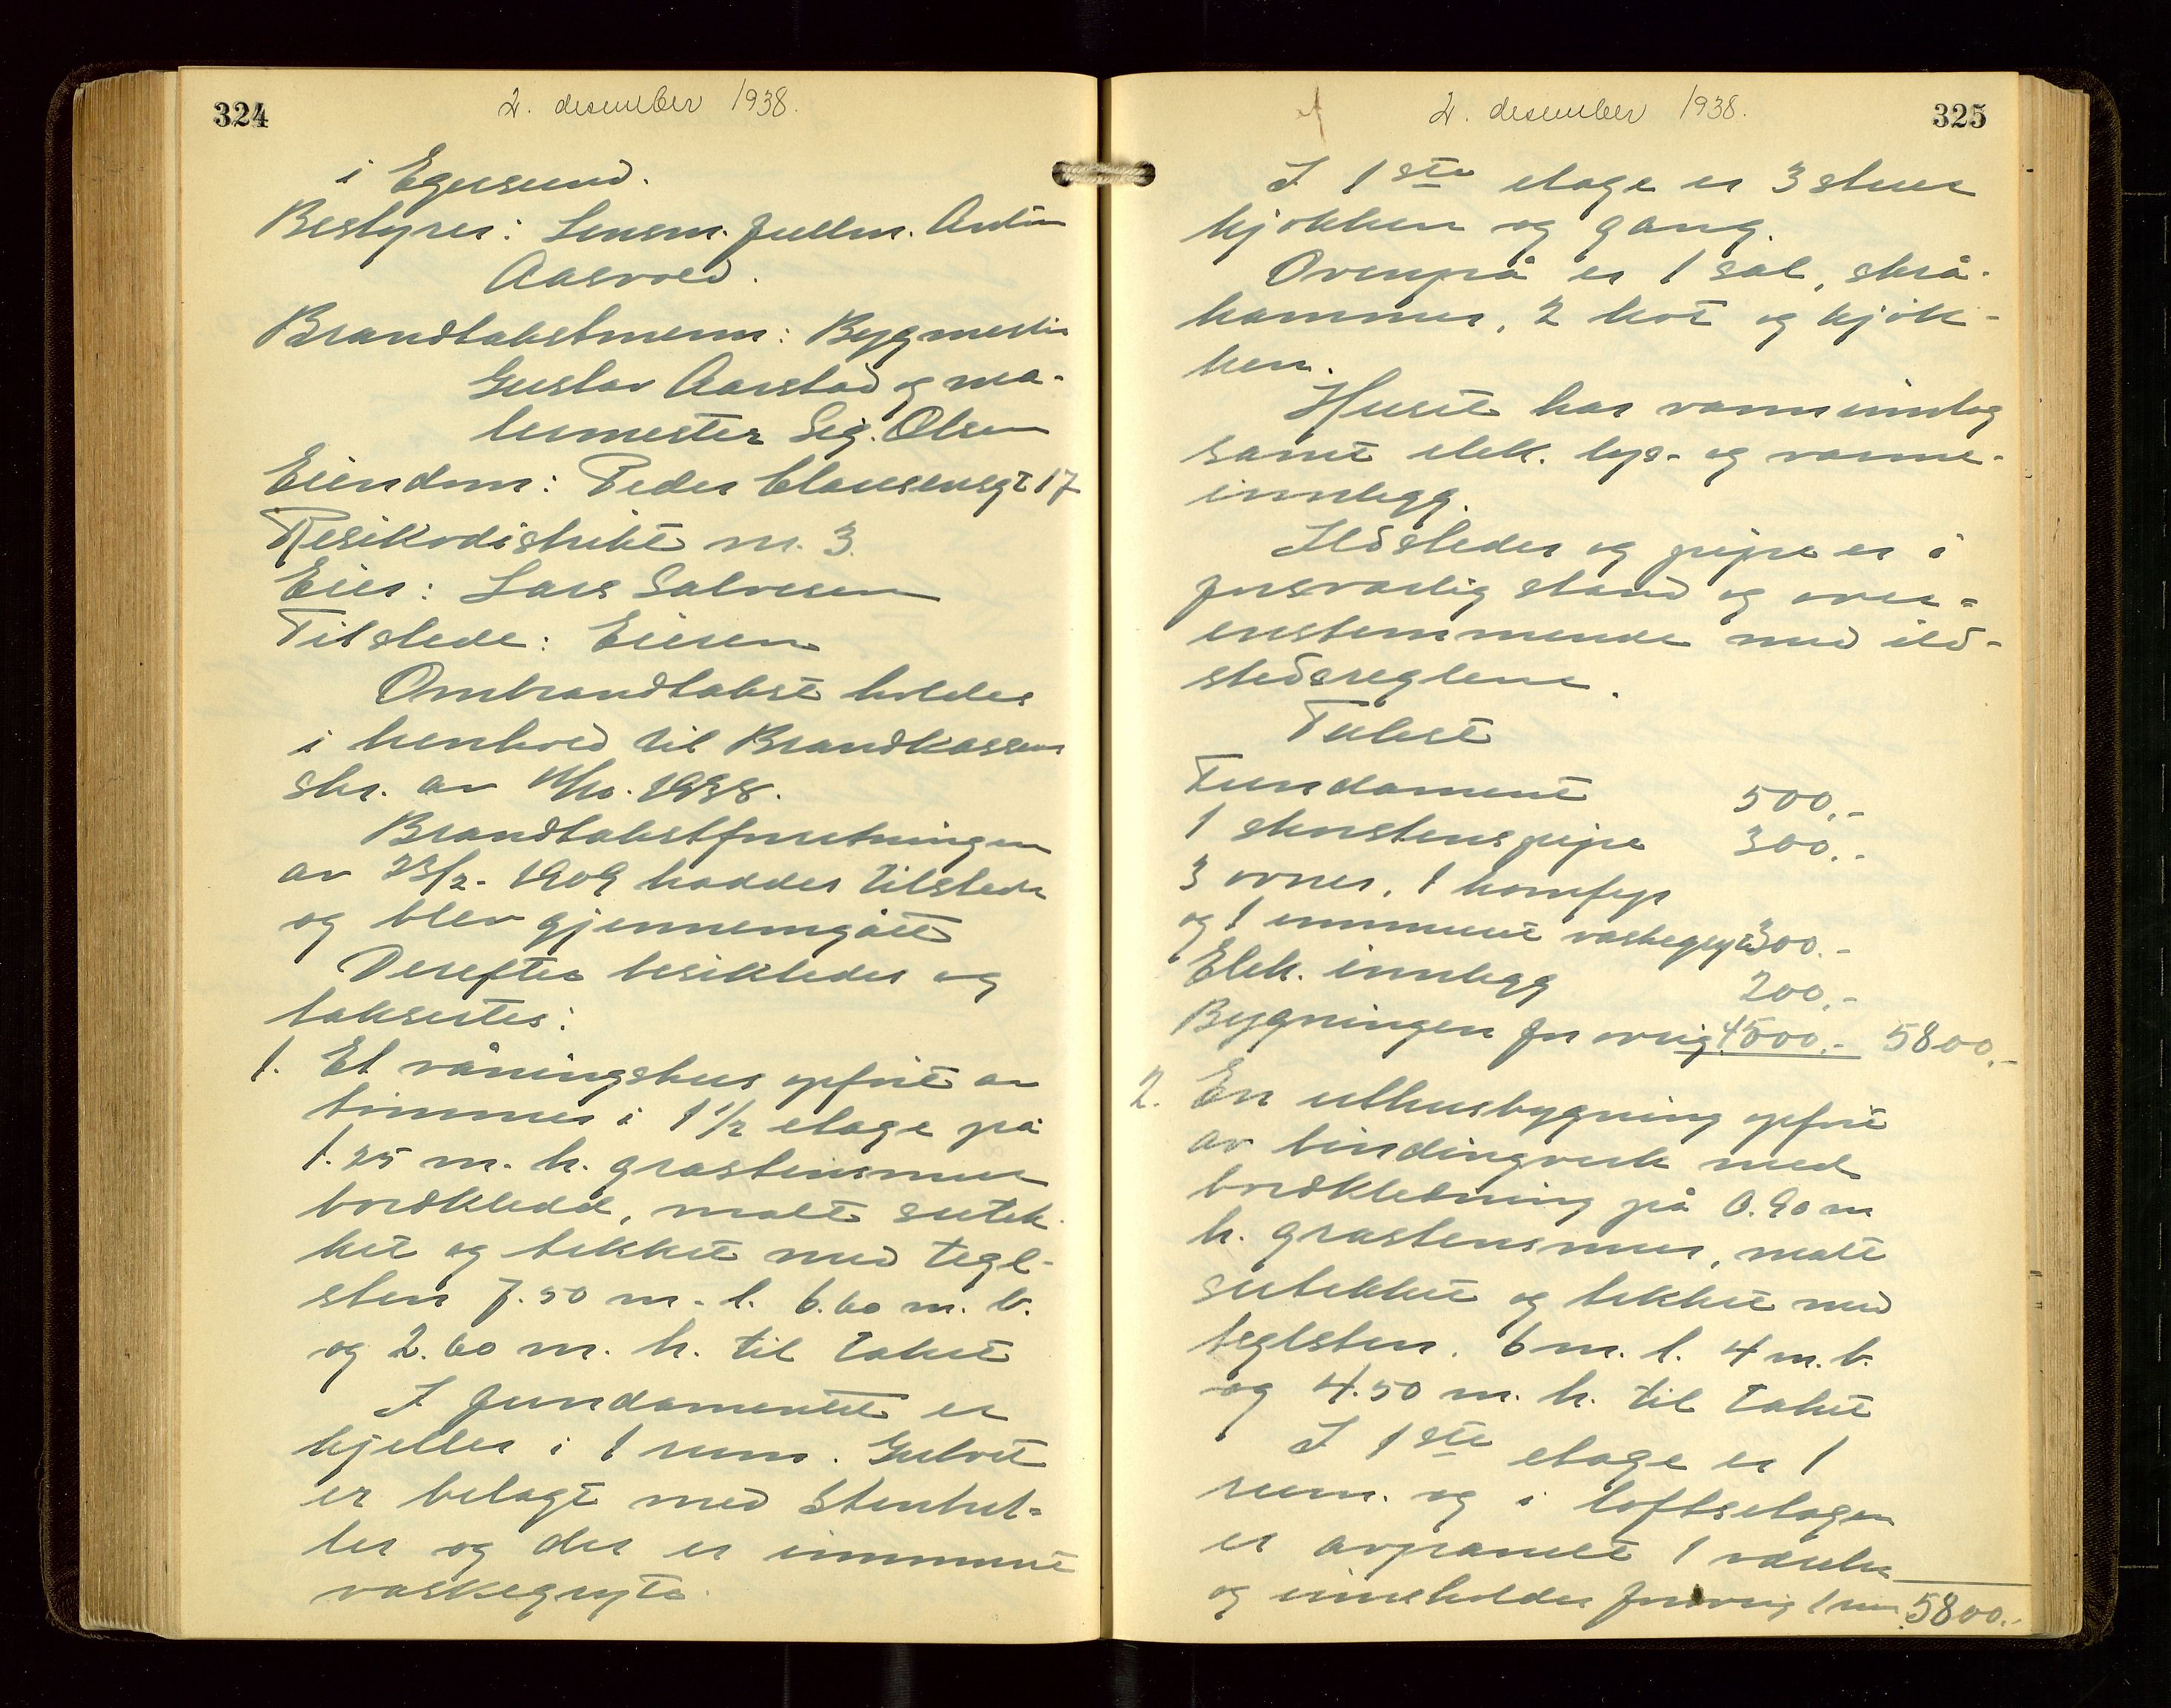 324
2. desember 1938.
i Egersund.
Bestyrer: Lensm. fullm. Anton
Aasvold.
Brandtakstmenn: Bygmester
Gustav Aarstad og ma-
lermester Sig. Olsen
Eiendom: Peder Clausensgt 17
Resikodistrikt nr. 3.
Eier: Lars Salvesen
Tilstede: Eieren
Ombrandtakst holdes
i henhold til Brandkassens
skr. av 11/10. 1938.
Brandtakstforretningen
av 23/2. 1909 haddes tilstede
og blev gjennemgått
Derefter besiktedes og
taksertes:
1. Et våningshus opført av
tømmer i 1 1/2 etage på
1.25 m. h. gråstensmur
bordkledd, malt sutek-
ket og tekket med tegl-
sten 7.50 m. l. 6.60 m. b.
og 2.60 m. h. til taket
I fundamentet er
kjeller i 1 rum. Gulvet
er belagt med stenhel-
ler og der er innmurt
vaskegryte.
2. desember 1938.
325
I 1ste etage er 3 stuer
kjøkken og gang.
Ovenpå er 1 sal, skrå-
kammer, 2 kot og kjøk-
ken.
Huset har vanninnleg
samt elek. lys- og varme-
innlegg.
Ildsteder og pipe er i
forsvarlig stand og over-
enstemmende med ild-
stedsreglene.
Takst
Fundament 500.-
1 skorstenspipe 300.-
3 ovner, 1 komfyr
og 1 innmurt vaskegryte 300.-
Elek. innlegg 200.-
Bygningen for øvrig 4500.- 5800.-
2. En uthusbygning opført
av bindingverk med
bordkledning på 0.90 m
h. gråstensmur, malt
sutekket og tekket med
teglsten. 6 m. l. 4 m. b.
og 4.50 m. h. til taket
I 1ste etage er 1
rum. og i loftsetagen
er avpanelt 1 værelse
og inneholder forøvrig 1 rum 5800.-